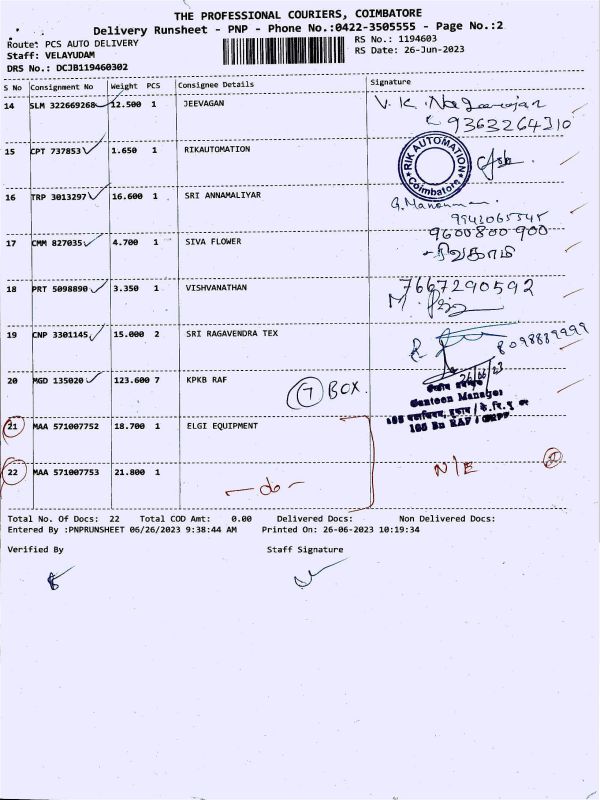 THE PROFESSIONAL COURIERS, COIMBATORE
Delivery Runsheet - PNP - Phone No.:0422-3505555 - Page No.:2
Route: PCS AUTO DELIVERY
RS No.: 1194603
Staff: VELAYUDAM
RS Date: 26-Jun-2023
DRS No.: DCJB119460302
S No Consignment No Weight PCS Consignee Details Signature
14 SLM 322669268 12.500 1 JEEVAGAN V. K. Nagarajan
9363264310
15 CPT 737853 1.650 1 RIKAUTOMATION
RIK AUTOMATION
Coimbatore
16 TRP 3013297 16.600 1 SRI ANNAMALIYAR
17 CMM 827035 4.700 1 SIVA FLOWER
9600800900
18 PRT 5098890 3.350 1 VISHVANATHAN 7667290592
19 CNP 3301145 15.000 2 SRI RAGAVENDRA TEX
20 MGD 135020 123.600 7 KPKB RAF 7 BOX 26/06/23
Canteen Manager
105 Bn RAF / CRPF
21 MAA 571007752 18.700 1 ELGI EQUIPMENT
22 MAA 571007753 21.800 1 N/E 2
-do-
Total No. Of Docs: 22 Total COD Amt: 0.00 Delivered Docs: Non Delivered Docs:
Entered By :PNPRUNSHEET 06/26/2023 9:38:44 AM Printed On: 26-06-2023 10:19:34
Verified By Staff Signature